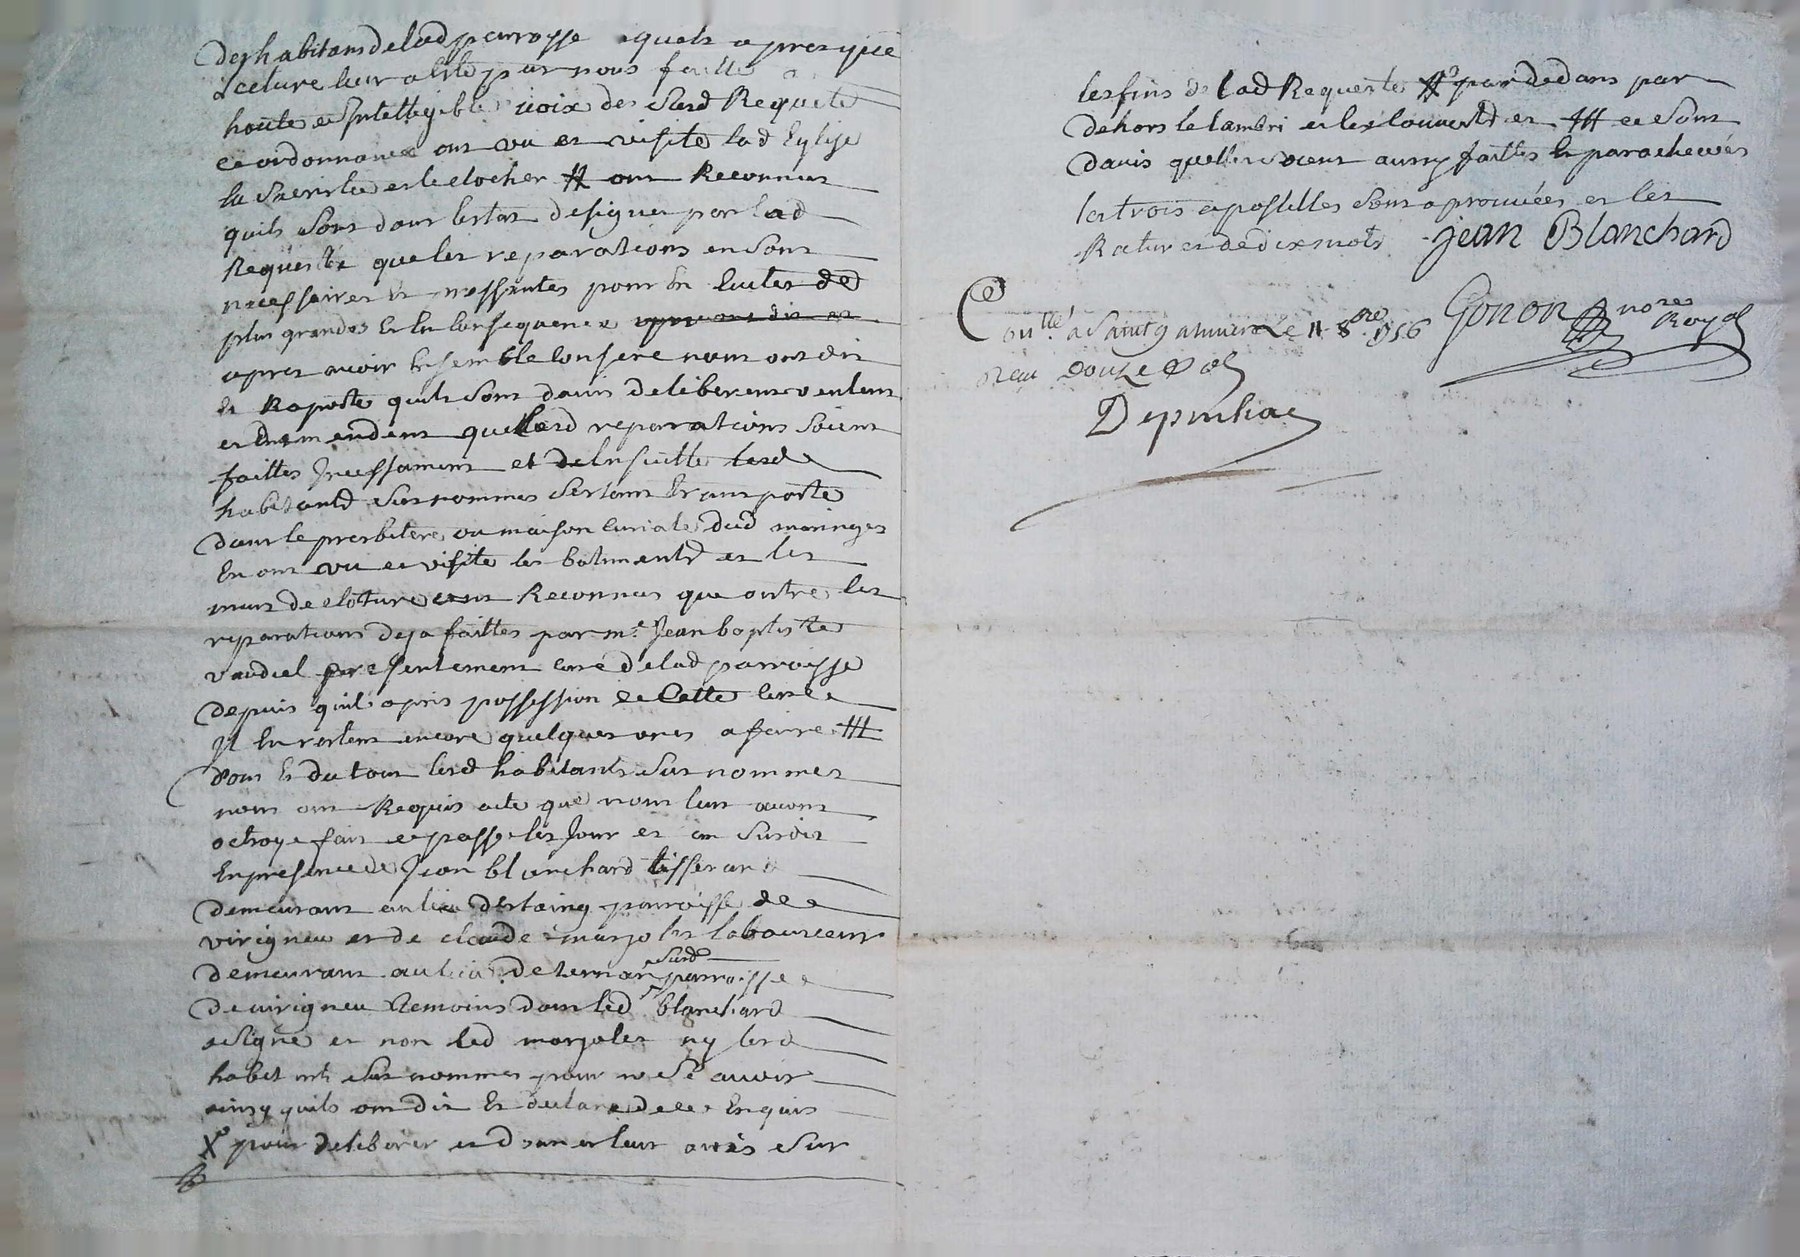 des habitans de lad parroisse auquels apres que
lecture leur a esté par nous faitte a
haute et Intelligible voix des Susd Requete
et ordonnance ont vu et visité lad Eglise
la Sacristie et le clocher # ont Reconnus
quils sont dans lestat designer par lad
Requeste que les reparations en sont
necessaires et pressentes pour en Eviter de
plus grandes Et En Consequence
apres avoir Ensemble Confere nous ont dit
et Raporté quils sont davis deliberent veulent
et demendent que lesd reparations soient
faittes Incessament et de la suitte lesd
habitants susnommes sestant transporté
dans le presbitere ou maison curiale dud maringes
En ont vu et visité les batiments et les
murs de cloture ont Reconnus que outre les
reparations deja faittes par me Jean baptiste
vaudiel presentement curé de lad parroisse
depuis quil a pris possession de Cette Cure
Il En restent encore quelques unes a faire #
dont Et du tout lesd habitants sus nommes
nous ont Requis acte que nous leur avons
octroye fait et passé les Jour et an susdit
En presence de Jean blanchard tisserand
demeurant au lieu destaing parroisse de
virigneu et de claude marjoles laboureur
demeurant au lieu de ternan susd parroisse
de virigneu temoins dont led blanchard
a signé et non led marjoles ny lesd
habitants sus nommes pour ne sçavoir
ainsy quils ont dit Et declaré de ce Enquis
X pour deliberer et donner leur avis sur
les fins de lad Requeste # par dedans par
dehors le lambri et les couverts et ## et sont
davis quelles soient aussy faittes et parachevées
les trois apostilles sont aprouvées et les
Ratures de dix mots Jean Blanchard
Contllé a Saint galmier Le 11 8bre 1756 Gonon nore Royal
Reçu Douze sols
Depinhac